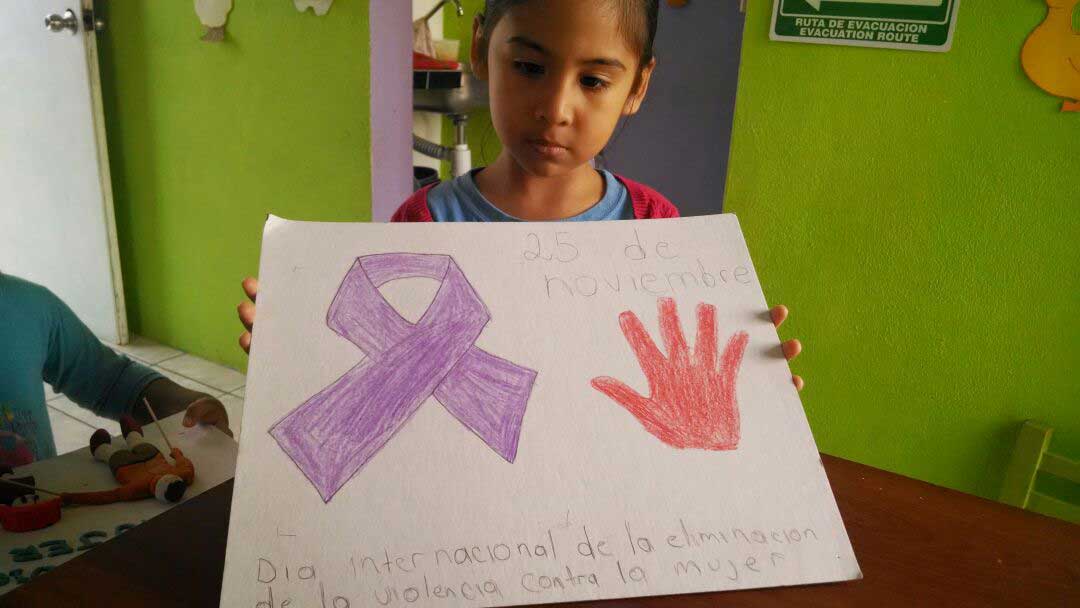 RUTA DE EVACUACIÓN
EVACUATION ROUTE
25 de
noviembre
Día internacional de la eliminacion
de la violencia contra la mujer